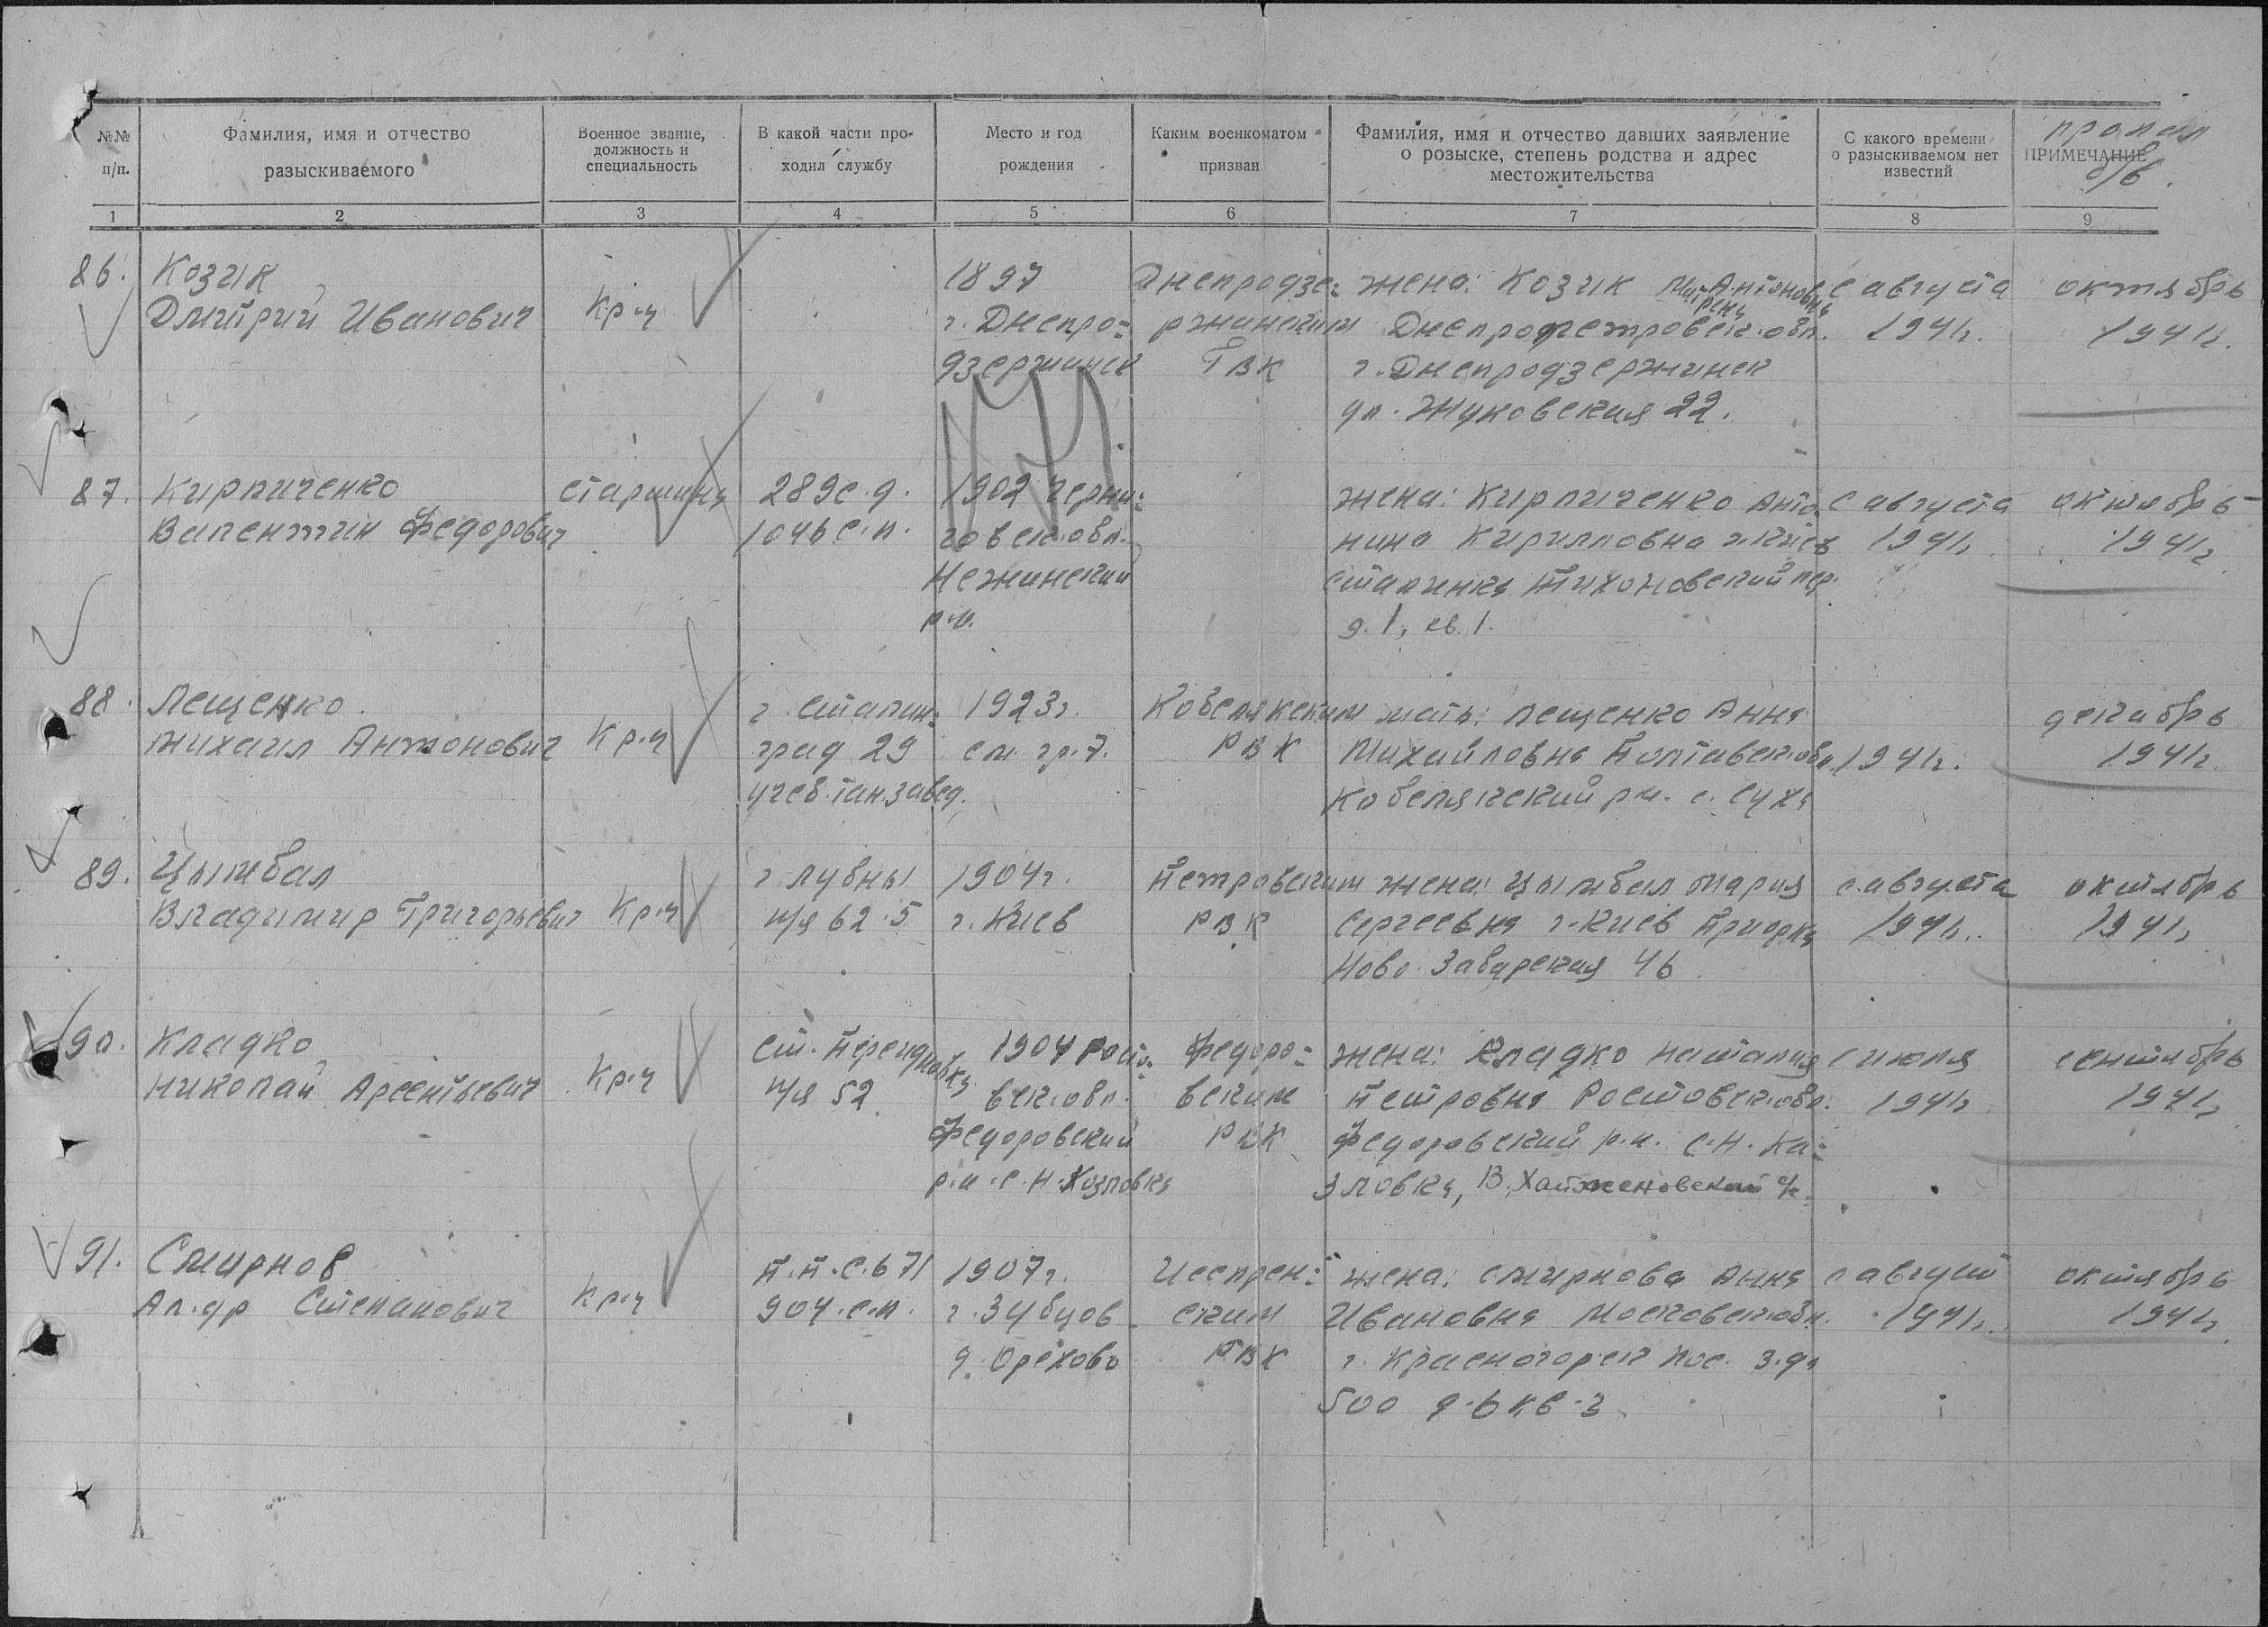 №№ п/п.
Фамилия, имя и отчество разыскиваемого
Военное звание, должность и специальность
В какой части проходил службу
Место и год рождения
Каким военкоматом призван
Фамилия, имя и отчество давших заявление о розыске, степень родства и адрес местожительства
С какого времени о разыскиваемом нет известий
пропал
ПРИМЕЧАНИЕ
б/в.
1 2 3 4 5 6 7 8 9
86. Козик 1897 Днепродзе= жена: Козик Матрена Антоновна с августа октябрь
Дмитрий Иванович Кр-ц г. Днепро= ржинским Днепропетровск. обл. 1941г. 1941г.
дзержинск ГВК г. Днепродзержинск
ул. Жуковская 22.
87. Кирпиченко старшина 289 с.д. 1902 Черни= жена: Кирпиченко Анто- с августа октябрь
Валентин Федорович 1046 с.п. говск. обл. нина Кирилловна г. Киев 1941г. 1941г.
Нежинский Тихоновский пер.
р-н. д. 1, кв. 1.
88. Лещенко г. Сталин= 1923г. Кобелякским мать: Лещенко Анна декабрь
Михаил Антонович Кр-ц град 29 см. гр. 7. РВК Михайловна Полтавск. обл. 1941г. 1941г.
учеб. тан. завед. Кобелякский р-н. с. Суха
89. Цымбал г. Лубны 1904г. Петровским жена: Цымбал Мария с августа октябрь
Владимир Григорьевич Кр-ц п/я 62-5 г. Киев РВК Сергеевна г. Киев Приорка 1941г. 1941г.
Ново-Забарская 46
90. Кладко ст. 1904 Росто- Федоро= жена: Кладко Наталия с июля сентябрь
Николай Арсентьевич Кр-ц п/я 52 вск. обл. вским Петровна Ростовск. обл. 1941г. 1941г.
Федоровский РВК Федоровский р-н. с. Н. Ка=
р-н с. Н. Козловка зловка, В.
91. Смирнов п.п.с. 671 1907г. жена: Смирнова Анна с август октябрь
Ал-др Степанович Кр-ц 904. с.п. г. Зубцов ским Ивановна Московск. обл. 1941г. 1941г.
д. Орехово РВК г. Красногорск пос. з-да
500 д-6 кв-3